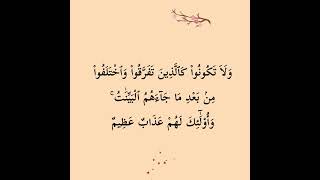 وَلَا تَكُونُوا۟ كَٱلَّذِينَ تَفَرَّقُوا۟ وَٱخْتَلَفُوا۟
مِنۢ بَعْدِ مَا جَآءَهُمُ ٱلْبَيِّنَٰتُ ۚ
وَأُو۟لَٰٓئِكَ لَهُمْ عَذَابٌ عَظِيمٌ